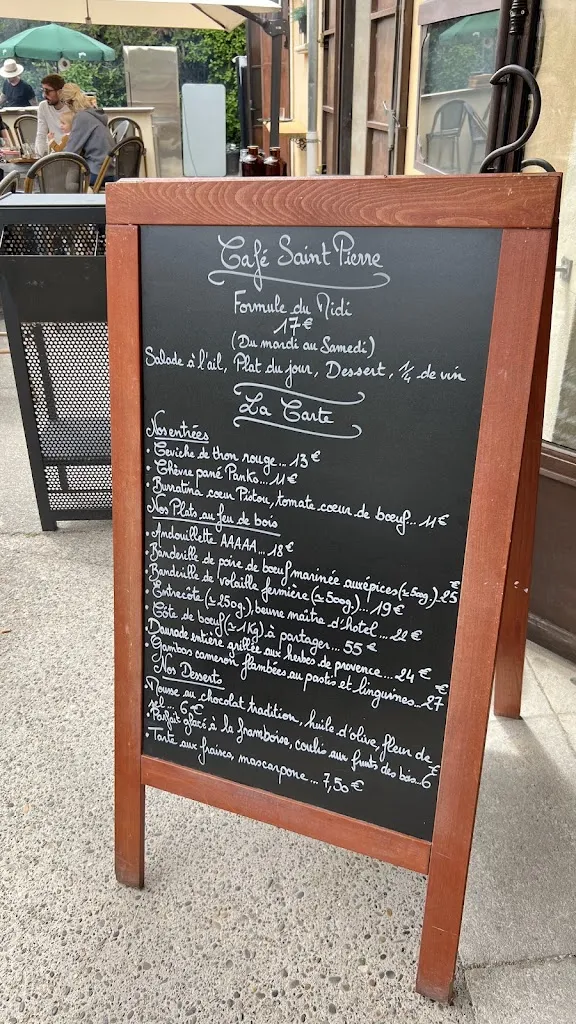 Café Saint Pierre
Formule du Midi
17€
(Du mardi au Samedi)
Salade à l'ail, Plat du jour, Dessert, 1/4 de vin
La Carte
Nos entrées
• Ceviche de thon rouge... 13€
• Chèvre pané Panko... 11€
• Burratina coeur Pistou, tomate coeur de boeuf... 11€
Nos Plats au feu de bois
• Andouillette AAAAA... 18€
• Banderille de poire de boeuf marinée aux épices (≃500g.)..25€
• Banderille de volaille fermière (≃500g.)... 19€
• Entrecôte (≃250g.), beurre maître d'hotel... 22€
• Côte de boeuf (≃1Kg) à partager... 55€
Daurade entière grillée aux herbes de provence.... 24€
• Gambas cameron flambées au pastis et linguines...27€
Nos Desserts
Mousse au chocolat tradition, huile d'olive, fleur de
sel... 6€
• Parfait glacé à la framboise, coulis aux fruits des bois..6€
• Tarte aux fraises, mascarpone... 7,50€